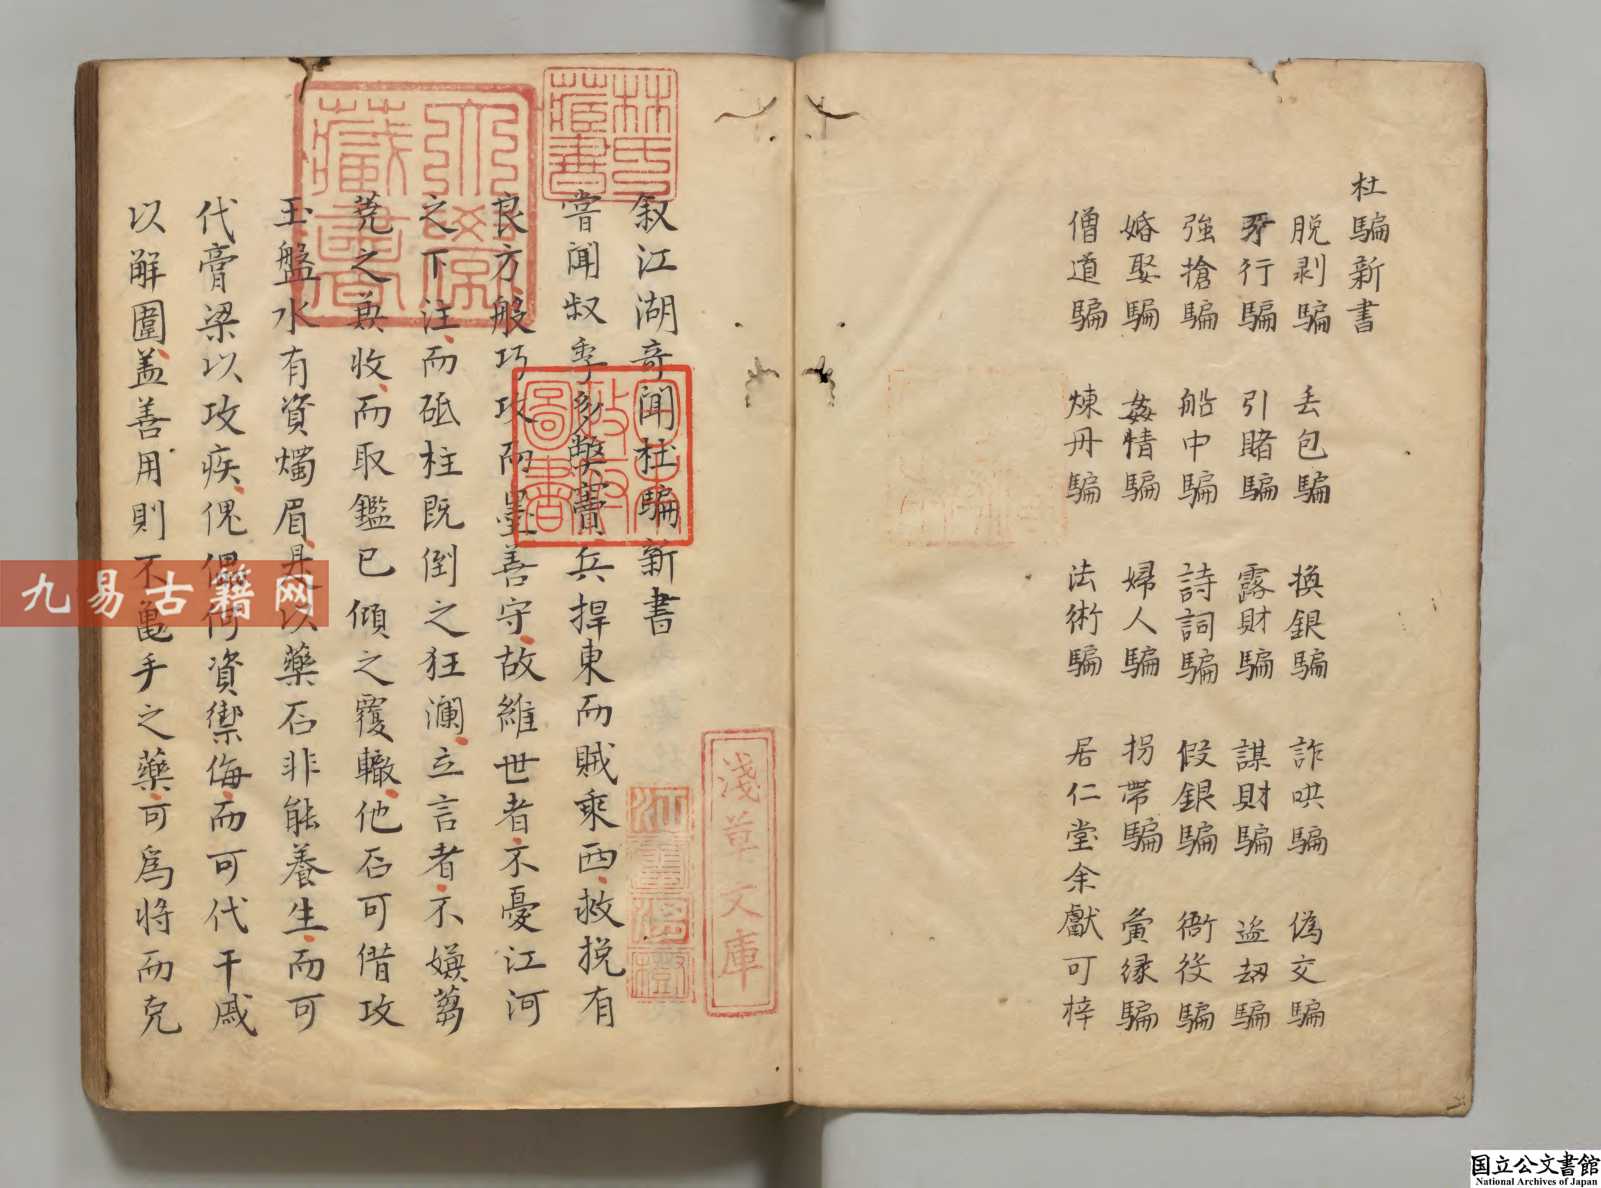 杜騙新書
脱剥騙 丢包騙 換銀騙 詐哄騙 偽交騙
牙行騙 引賭騙 露財騙 謀財騙 盗刼騙
強搶騙 船中騙 詩詞騙 假銀騙 衙役騙
婚娶騙 姦情騙 婦人騙 拐帯騙 夤縁騙
僧道騙 煉丹騙 法術騙 居仁堂余獻可梓
叙江湖奇聞杜騙新書
嘗聞叔季多獘竇兵捍東而賊乘西救挽有
良方般巧攻而墨善守故維世者不憂江河
之下注而砥柱既倒之狂瀾立言者不嫌蒭
蕘之兼收而取鑑已傾之覆轍他石可借攻
玉盤水有資燭眉是以藥石非能養生而可
代膏梁以攻疾傀儡何資禦侮而可代干戚
以解圍盖善用則不亀手之藥可爲將而克
林氏藏書
藏書
圖書
淺草文庫
九易古籍网
国立公文書館
National Archives of Japan